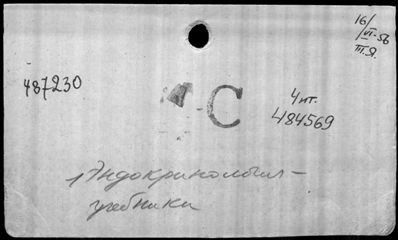 16/
/VI-56
III.Я.
487230
C
4 чт.
484569
1) Эндокринология -
учебники